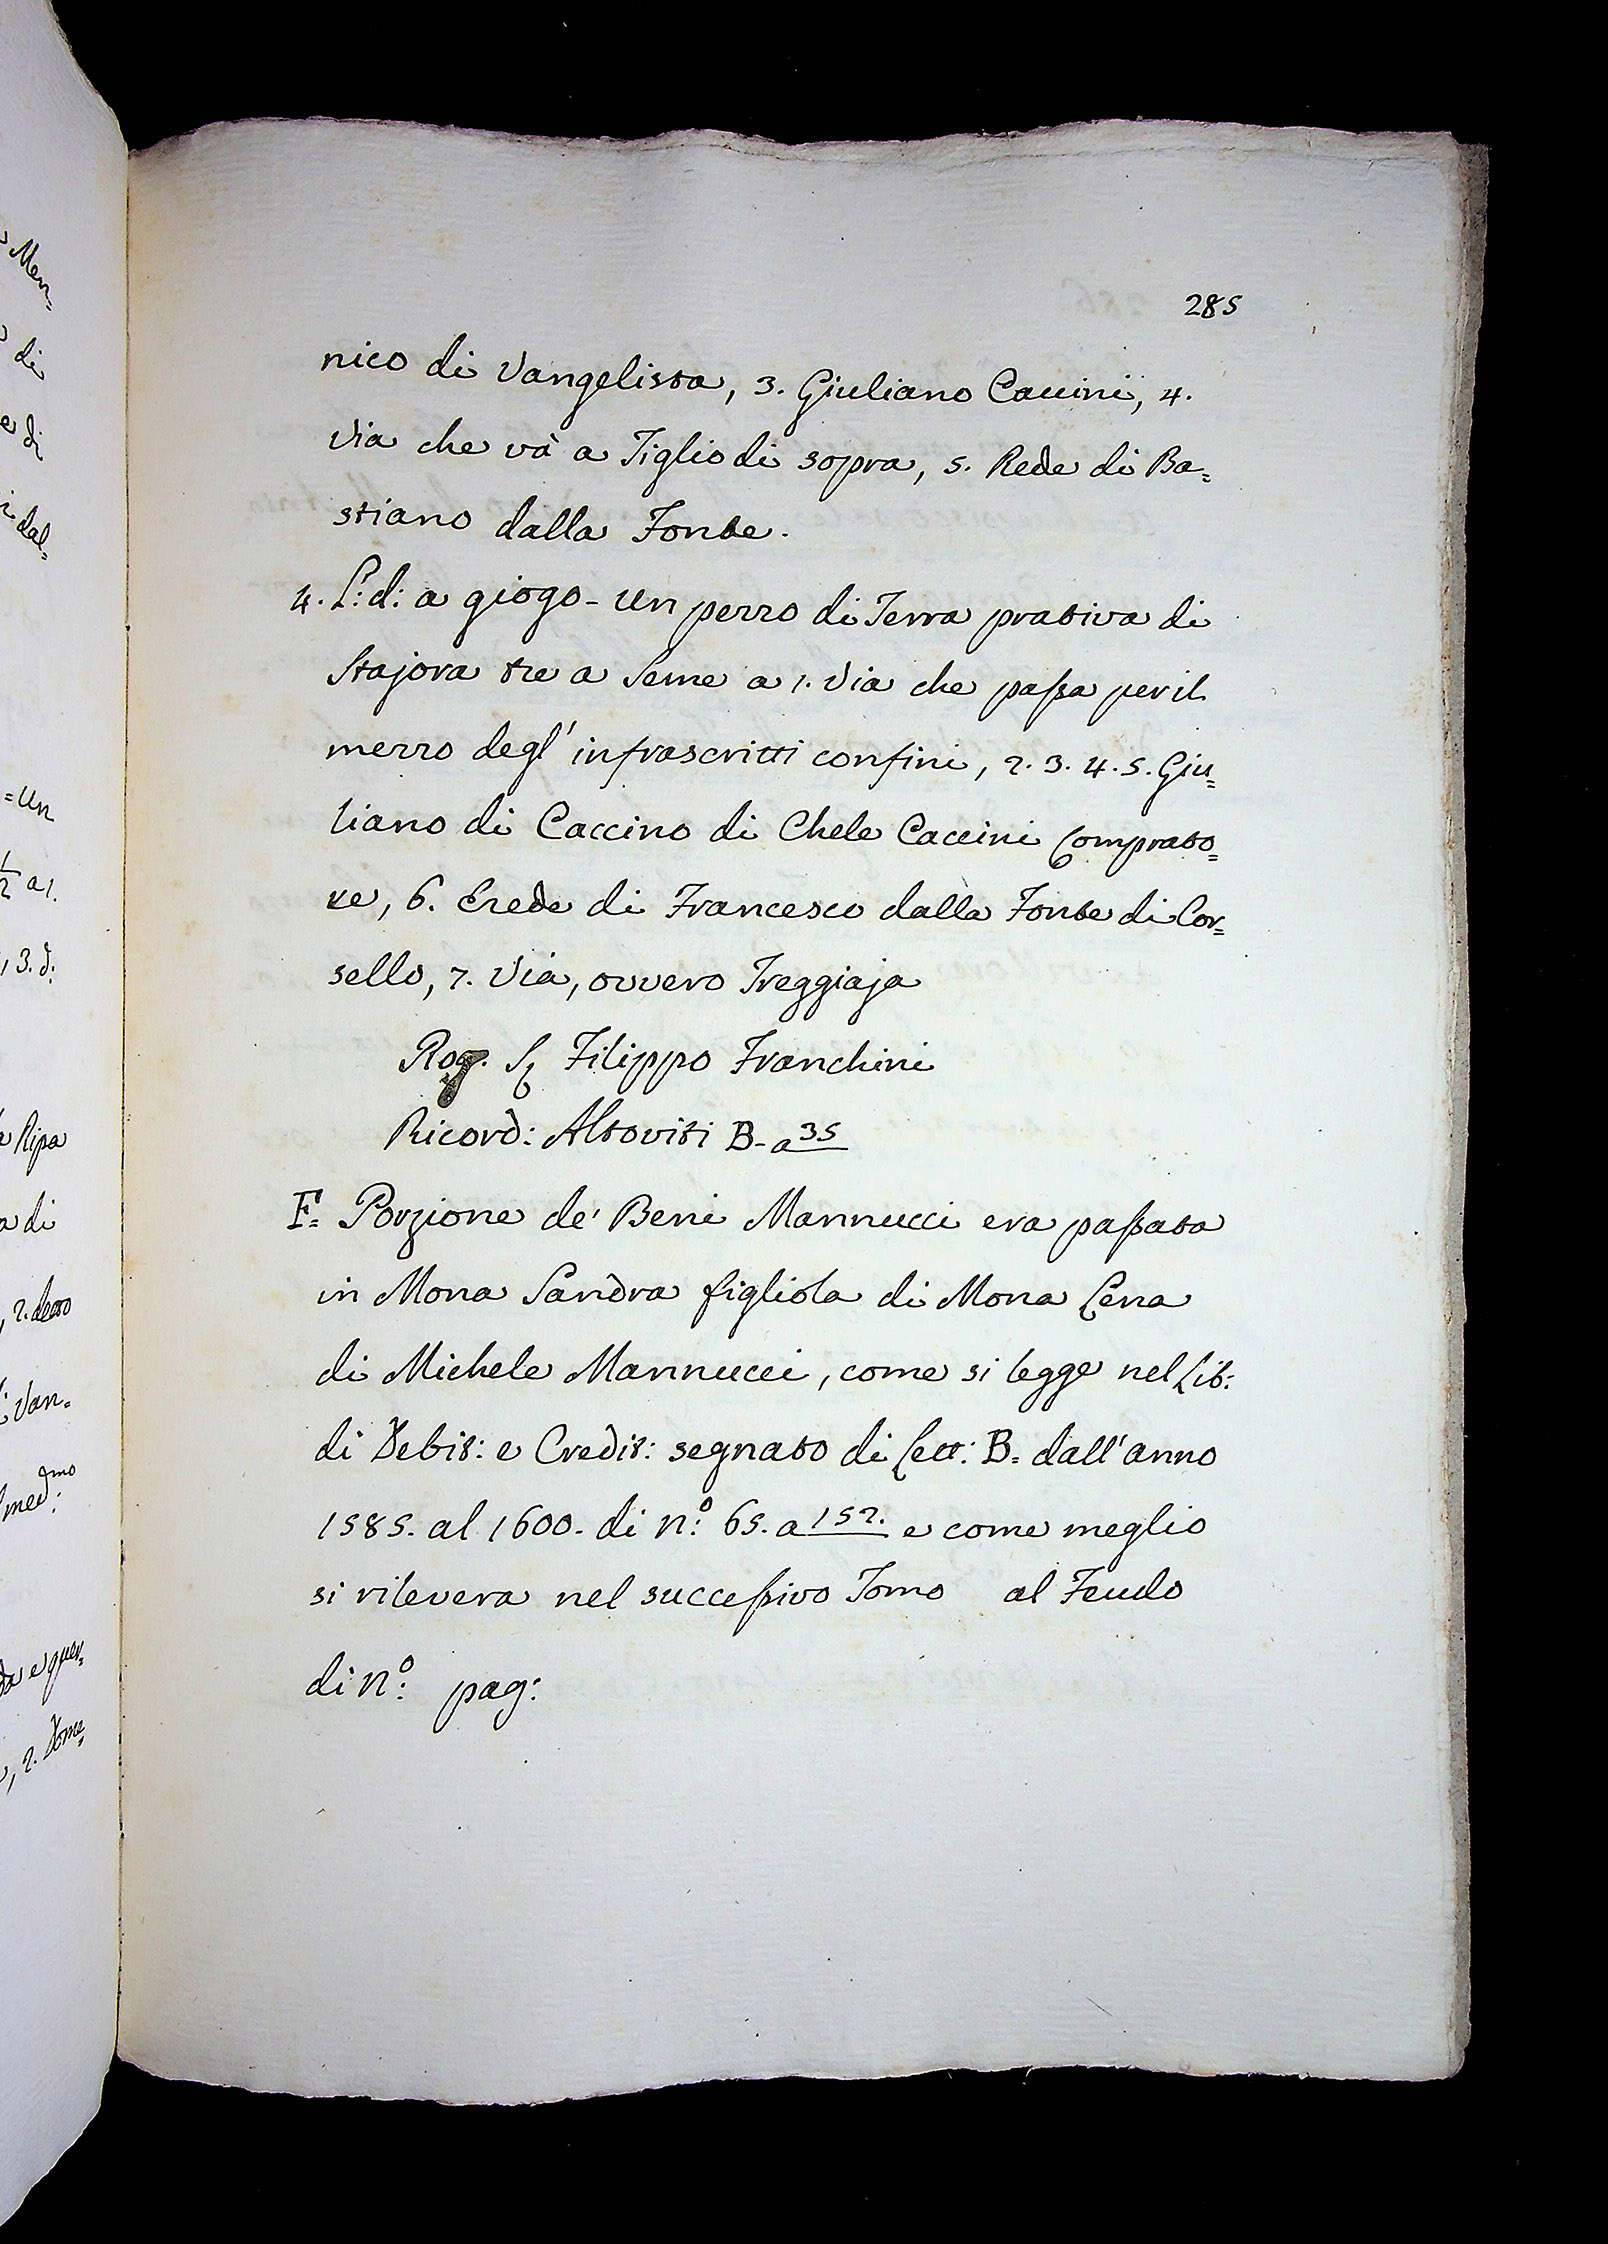 Men=
di
e di
i dal=
=un
1/2 a 1.
, 3. d:
Ripa
a di
, 2. detto
di Van=
med:mo
da e quer=
, 2. Dome=
285
nico di Vangelista, 3. Giuliano Caccini, 4.
Via che và a Tiglio di sopra, 5. Rede di Ba=
stiano dalla Fonte.
4. L: d: a giogo - Un pezzo di Terra prativa di
Stajora tre a Seme a 1. Via che passa per il
mezzo degl' infrascritti confini, 2. 3. 4. 5. Giu=
liano di Caccino di Chele Caccini Comprato=
re, 6. Erede di Francesco dalla Fonte di Cor=
sello, 7. Via, ovvero Treggiaja
Rog. Sr Filippo Franchini
Ricord: Altoviti B - a 35
F= Porzione de' Beni Mannucci era passata
in Mona Sandra figliola di Mona Lena
di Michele Mannucci, come si legge nel Lib:
di Debit: e Credit: segnato di Lett: B= dall'anno
1585. al 1600. di n:o 65. a 152. e come meglio
si rilevera nel successivo Tomo al Feudo
di N:o pag: